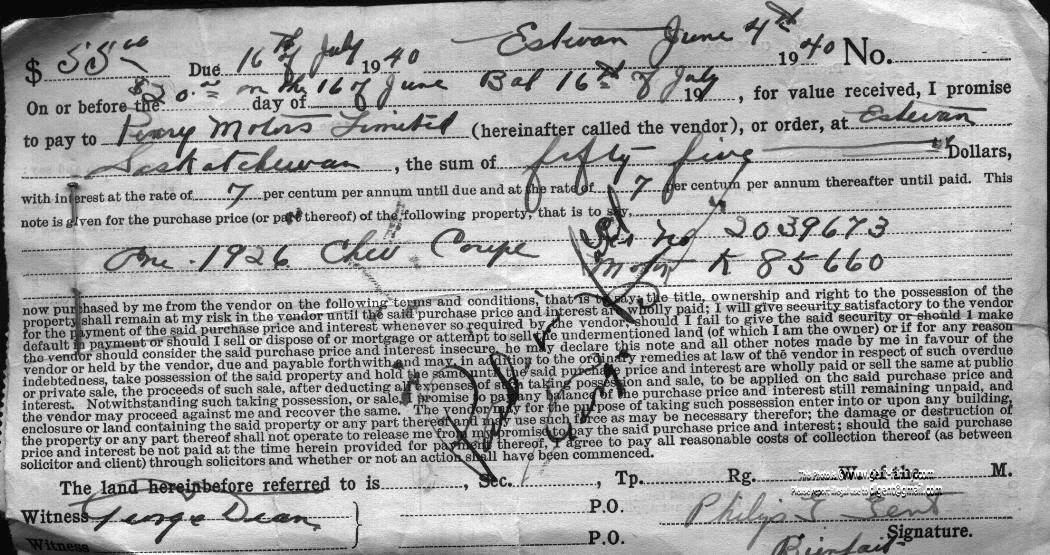 $ 55.00 Due 16th of July 1940 Estevan June 4th 1940 No.
$30.00 on the 16 of June Bal 16th of July
On or before the day of 19 , for value received, I promise
to pay to Penny Motors Limited (hereinafter called the vendor), or order, at Estevan
Saskatchewan , the sum of fifty five Dollars,
with interest at the rate of 7 per centum per annum until due and at the rate of 7 per centum per annum thereafter until paid. This
note is given for the purchase price (or part thereof) of the following property, that is to say,
One 1926 Chev Coupe Ser No 2039673
Motor K 85660
now purchased by me from the vendor on the following terms and conditions, that is to say, the title, ownership and right to the possession of the
property shall remain at my risk in the vendor until the said purchase price and interest are wholly paid; I will give security satisfactory to the vendor
for the payment of the said purchase price and interest whenever so required by the vendor; should I fail to give the said security or should I make
default in payment or should I sell or dispose of or mortgage or attempt to sell the undermentioned land (of which I am the owner) or if for any reason
the vendor should consider the said purchase price and interest insecure, he may declare this note and all other notes made by me in favour of the
vendor or held by the vendor, due and payable forthwith and may, in addition to the ordinary remedies at law of the vendor in respect of such overdue
indebtedness, take possession of the said property and hold the same until the said purchase price and interest are wholly paid or sell the same at public
or private sale, the proceeds of such sale, after deducting all expenses of such taking possession and sale, to be applied on the said purchase price and
interest. Notwithstanding such taking possession, or sale, I promise to pay any balance of the purchase price and interest still remaining unpaid, and
the vendor may proceed against me and recover the same. The vendor may for the purpose of taking such possession enter into or upon any building,
enclosure or land containing the said property or any part thereof and may use such force as may be necessary therefor; the damage or destruction of
the property or any part thereof shall not operate to release me from my promise to pay the said purchase price and interest; should the said purchase
price and interest be not paid at the time herein provided for payment thereof, I agree to pay all reasonable costs of collection thereof (as between
solicitor and client) through solicitors and whether or not an action shall have been commenced.
The land hereinbefore referred to is , Sec. , Tp. Rg. W. of the M.
Witness George Dean P.O. Philip L Gent
Signature.
Witness P.O. Bienfait